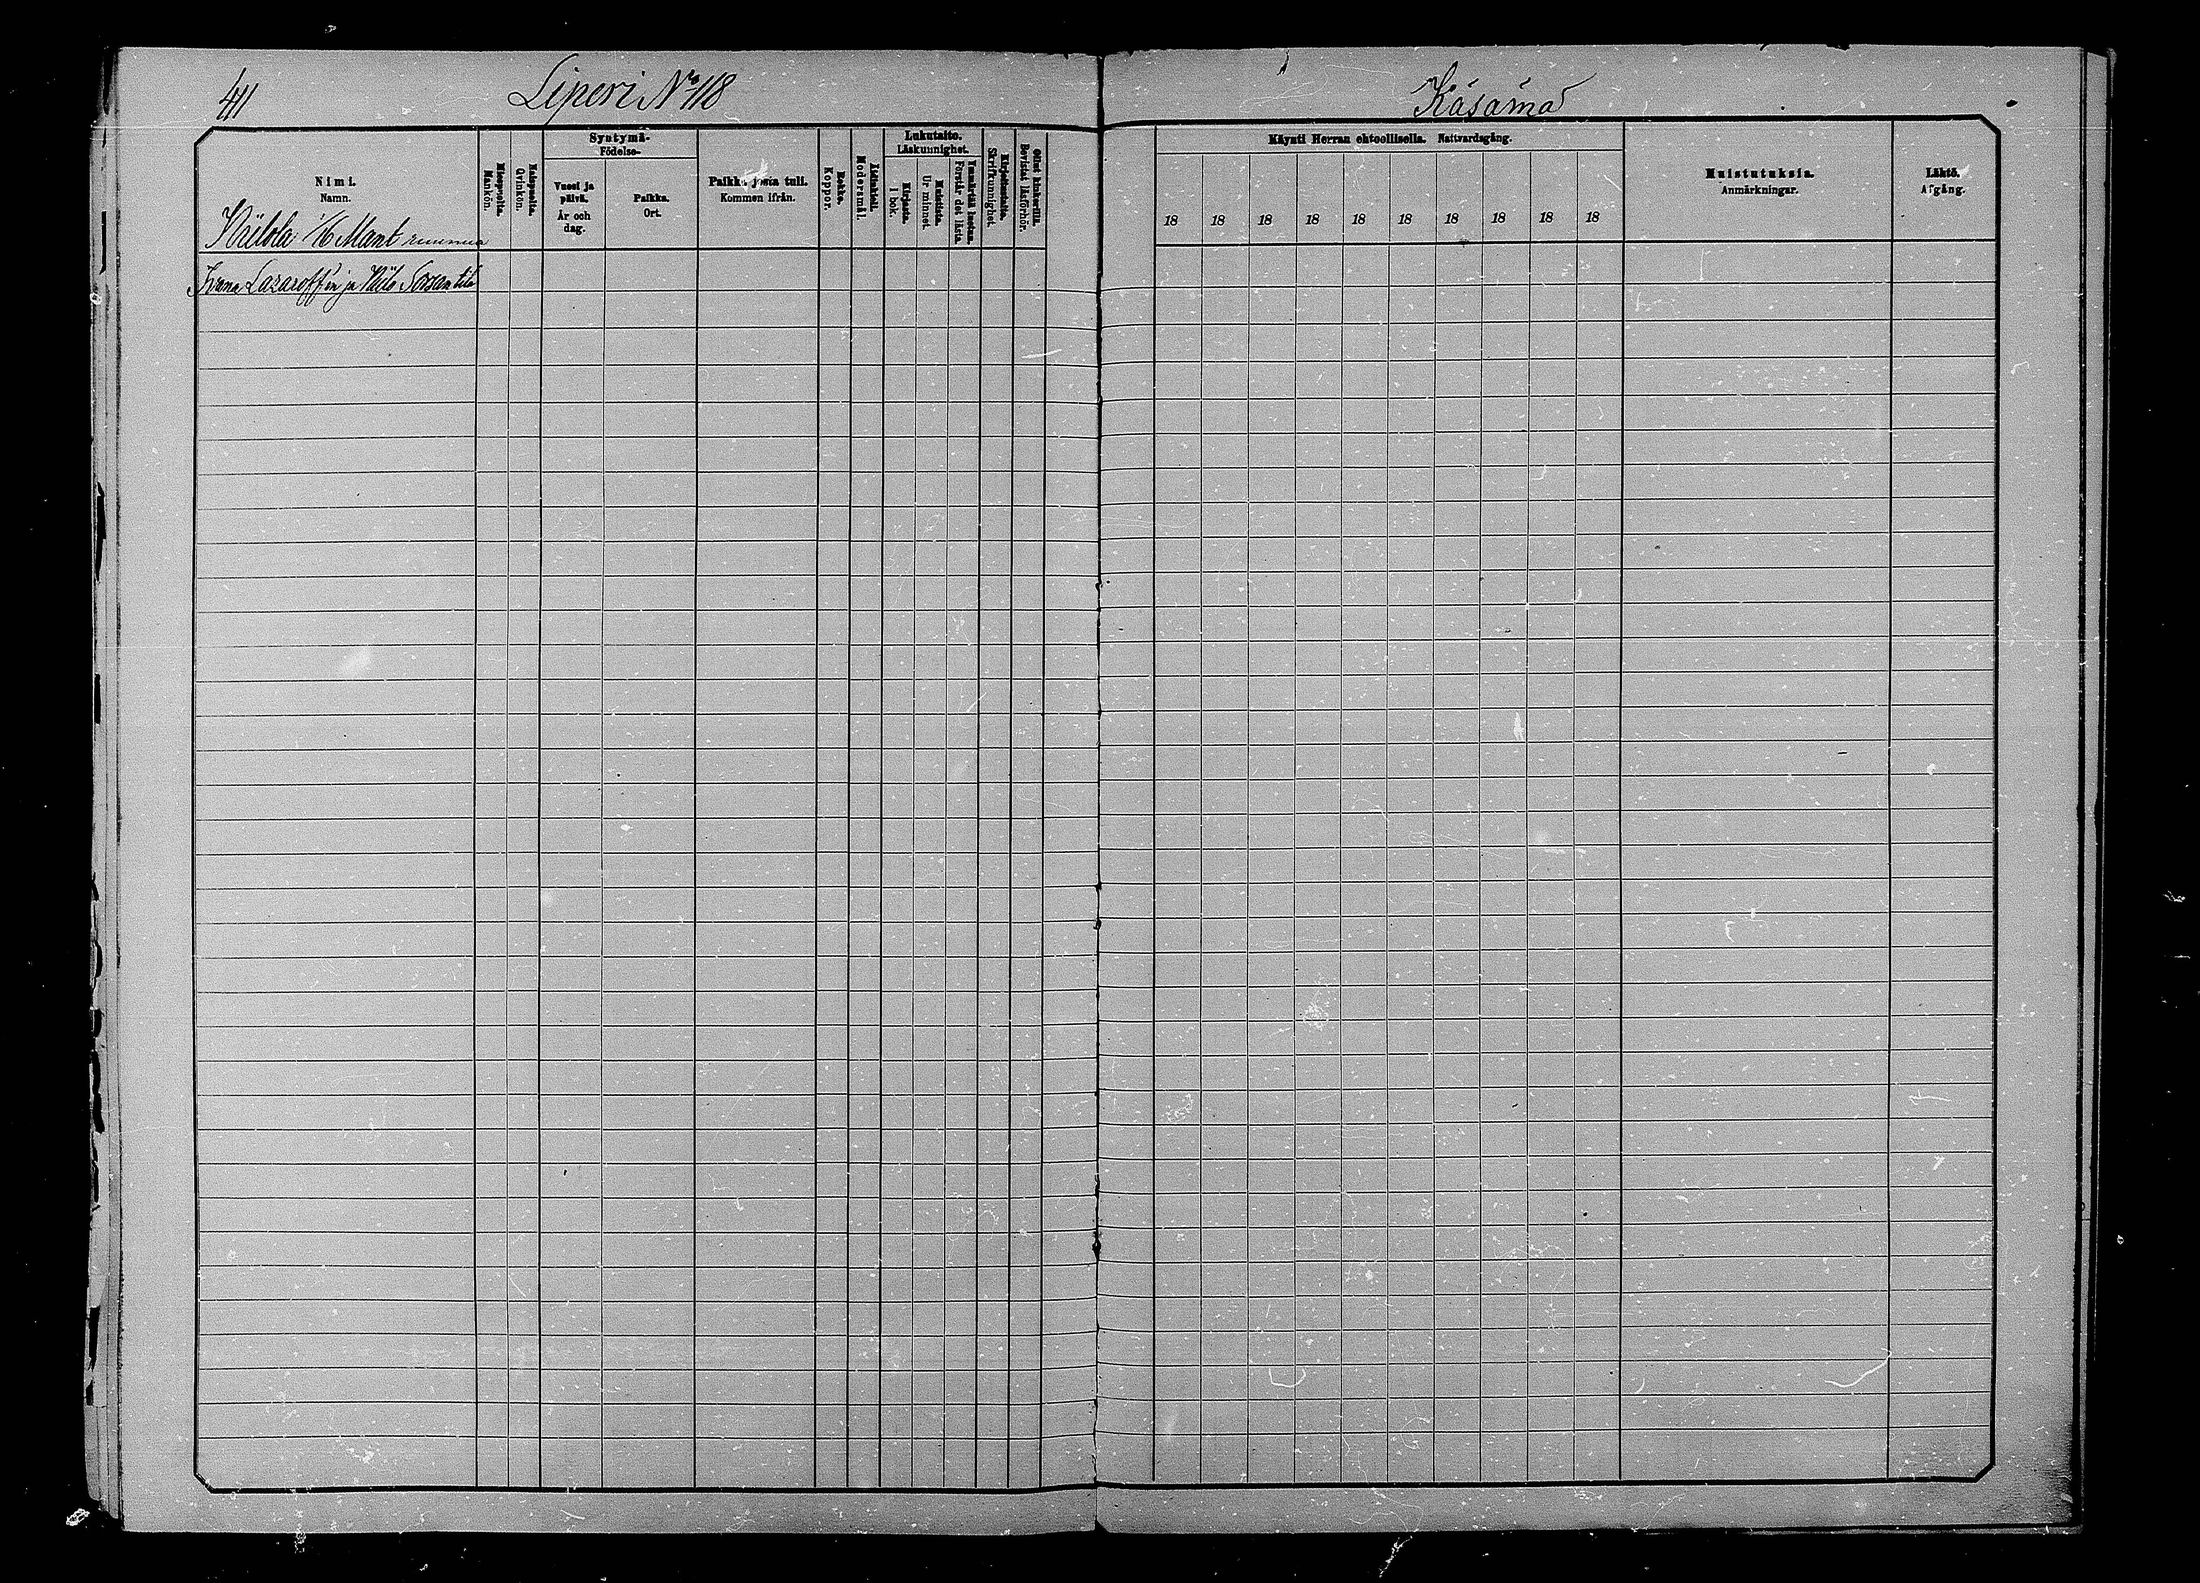 411
Liperi No 118
Käsämä
Syntymä-
Födelse-
Lukutaito.
Läskunnighet.
Käynti Herran ehtoollisella. Nattvardsgång.
Nimi.
Namn.
Miespuolia.
Mankön.
Vaimopuolia.
Qvinkön.
Vuosi ja
päivä.
År och
dag.
Paikka.
Ort.
Paikka josta tuli.
Kommen ifrån.
Rokko.
Koppor.
Äidinkieli.
Modersmål.
Kirjasta.
I bok.
Muistista.
Ur minnet.
Ymmärtää luetun.
Förstår det lästa.
Kirjoitustaito.
Skrifkunnighet.
Ollut lukukerillä.
Bevistat läsförhör.
18 18 18 18 18 18 18 18 18 18
Muistutuksia.
Anmärkningar.
Lähtö.
Afgång.
1/6 Mant
Lazaroff'in ja